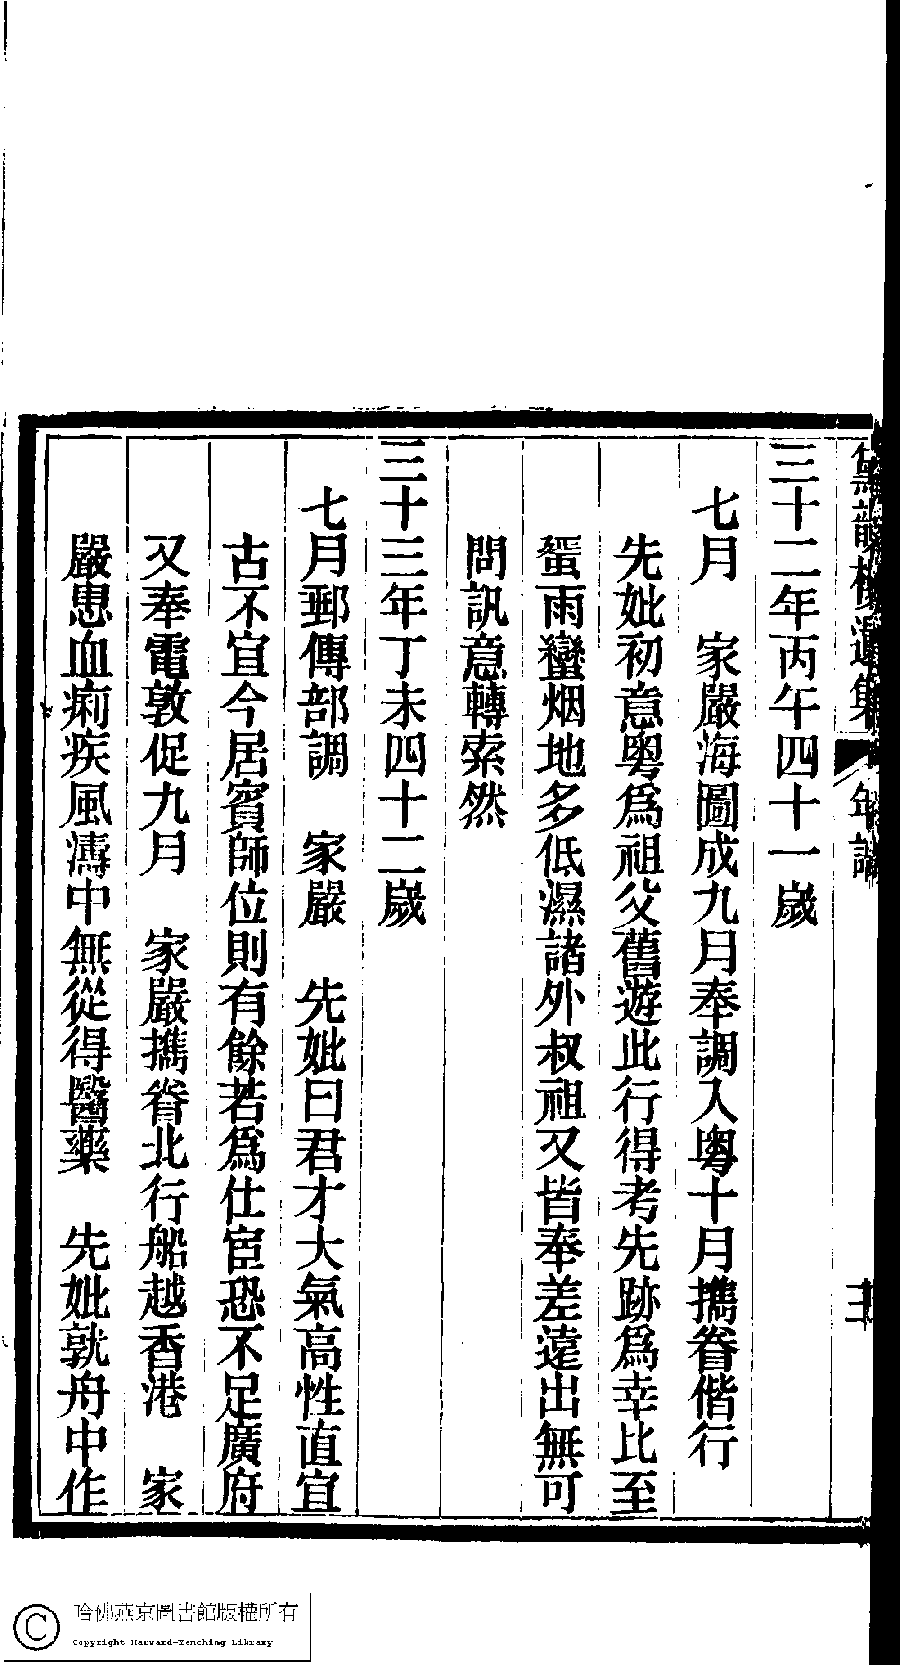 黛韻樓遺集 年譜
三十二年丙午四十一歲
七月 家嚴海圖成九月奉調入粵十月攜眷偕行
先妣初意粵爲祖父舊遊此行得考先跡爲幸比至
蜑雨蠻烟地多低濕諸外叔祖又皆奉差遠出無可
問訊意轉索然
三十三年丁未四十二歲
七月郵傳部調 家嚴 先妣曰君才大氣高性直宜
古不宜今居賓師位則有餘若爲仕宦恐不足廣府
又奉電敦促九月 家嚴攜眷北行船越香港 家
嚴患血痢疾風濤中無從得醫藥 先妣就舟中作
哈佛燕京圖書館版權所有
Copyright Harvard-Yenching Library